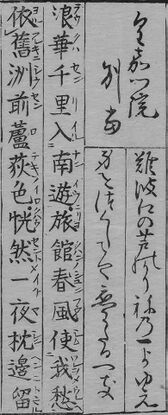 皇嘉門院
別当
難波江の芦のかり祢乃一よゆゑ
身をつくしてや恋わたるへき
浪華千里入南遊旅館春風使我愁
依舊洲前蘆荻色恍然一夜枕邊留